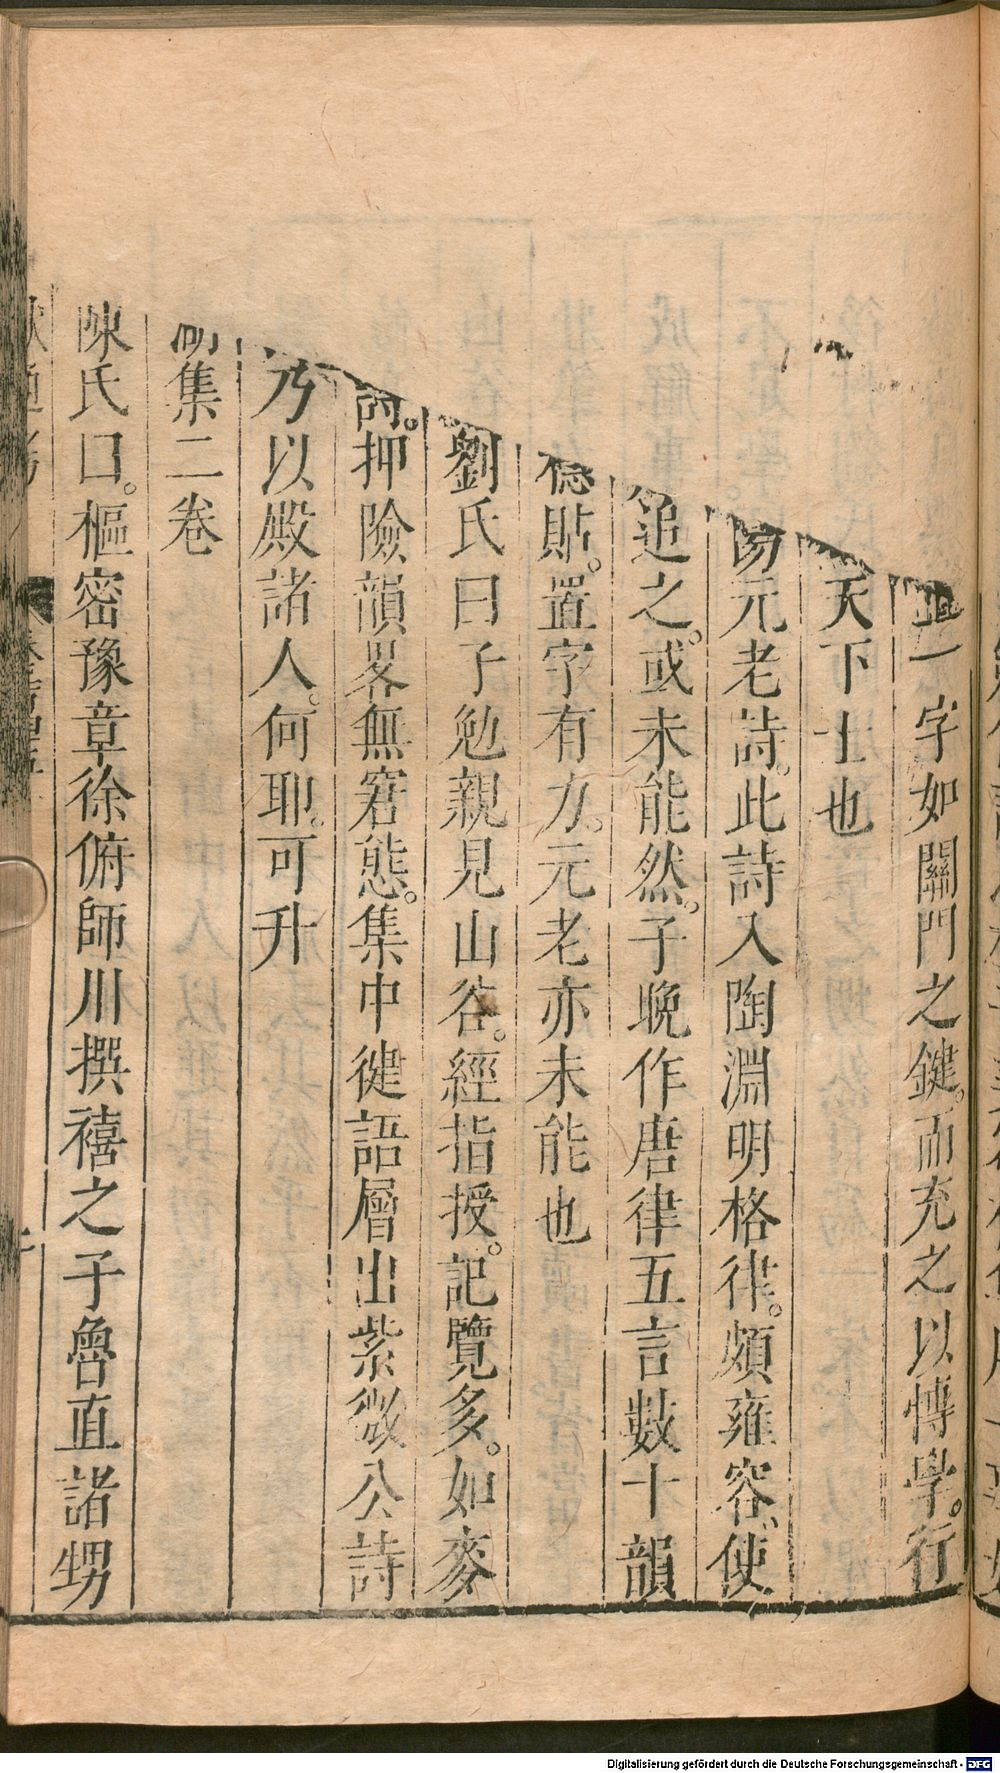 一字如關門之鍵。而充之以博學。行
天下士也
元老詩。此詩入陶淵明格律。頗雍容、使
追之。或未能然。子晚作唐律五言數十韻
貼。置字有力。元老亦未能也
劉氏曰子勉親見山谷。經指授。記覽多。如麥
詩。押險韻畧無窘態。集中健語層出紫微公詩
乃以殿諸人。何耶。可升
集二卷
陳氏曰。樞密豫章徐俯師川撰禧之子魯直諸甥
Digitalisierung gefördert durch die Deutsche Forschungsgemeinschaft - DFG